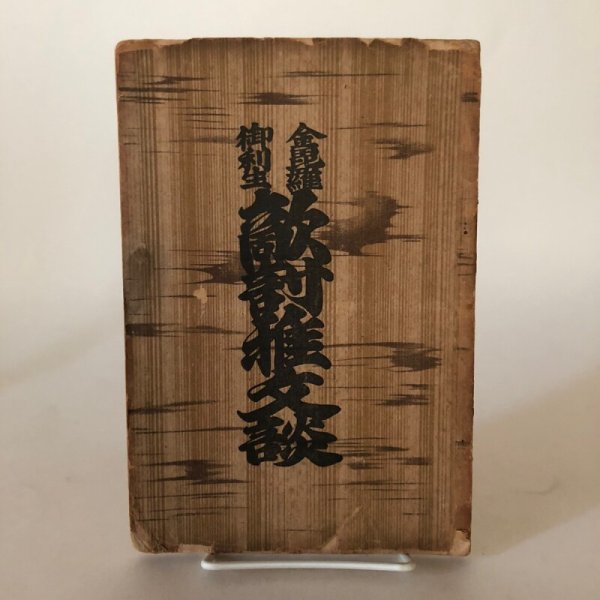 金毘羅
御利生
敵討推文談